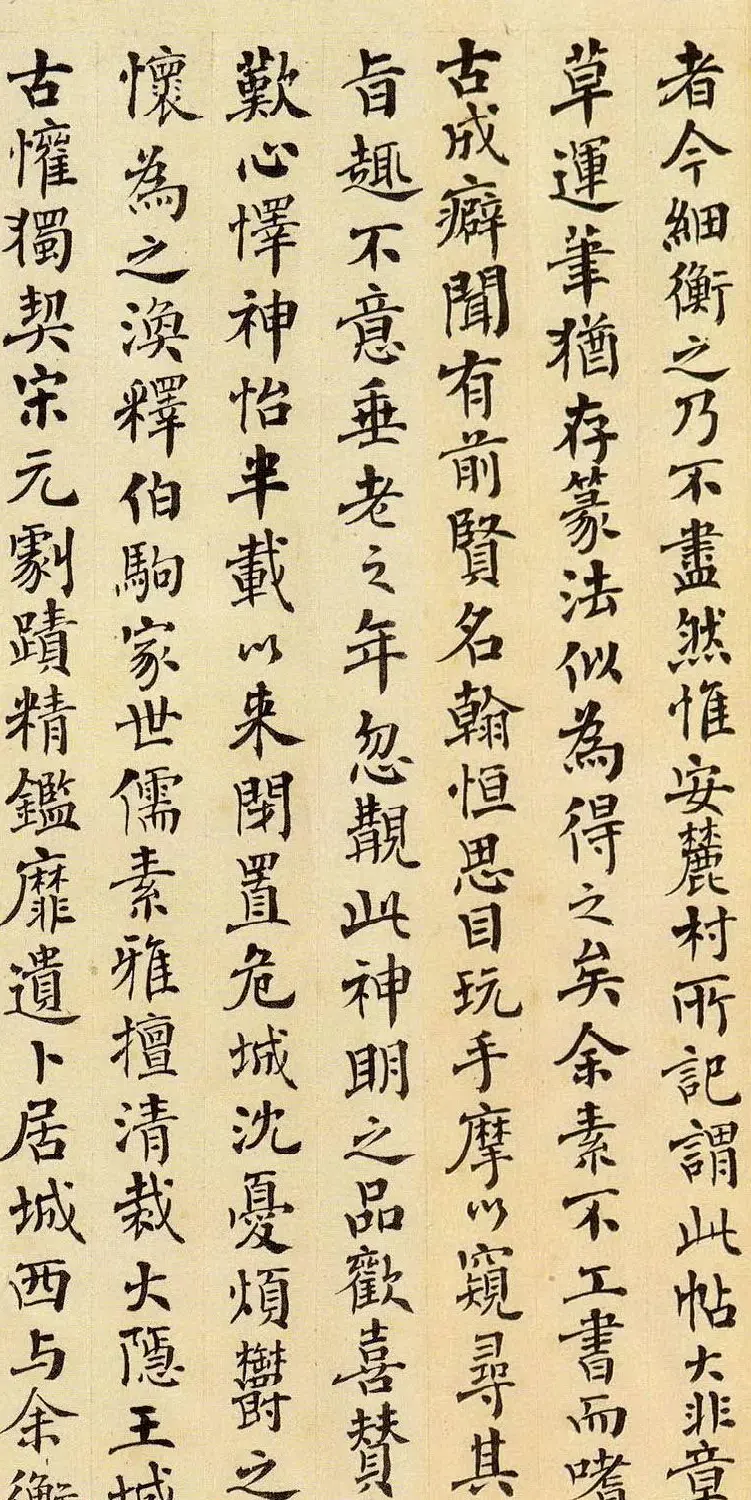 者今細衡之乃不盡然惟安麓村所記謂此帖大非章
草運筆猶存篆法似為得之矣余素不工書而嗜
古成癖聞有前賢名翰恒思目玩手摩以窺尋其
旨趣不意垂老之年忽覩此神明之品歡喜贊
歎心懌神怡半載以来閉置危城沈憂煩鬱之
懷為之渙釋伯駒家世儒素雅擅清裁大隱王城
古懽獨契宋元劇蹟精鑑靡遺卜居城西与余衡